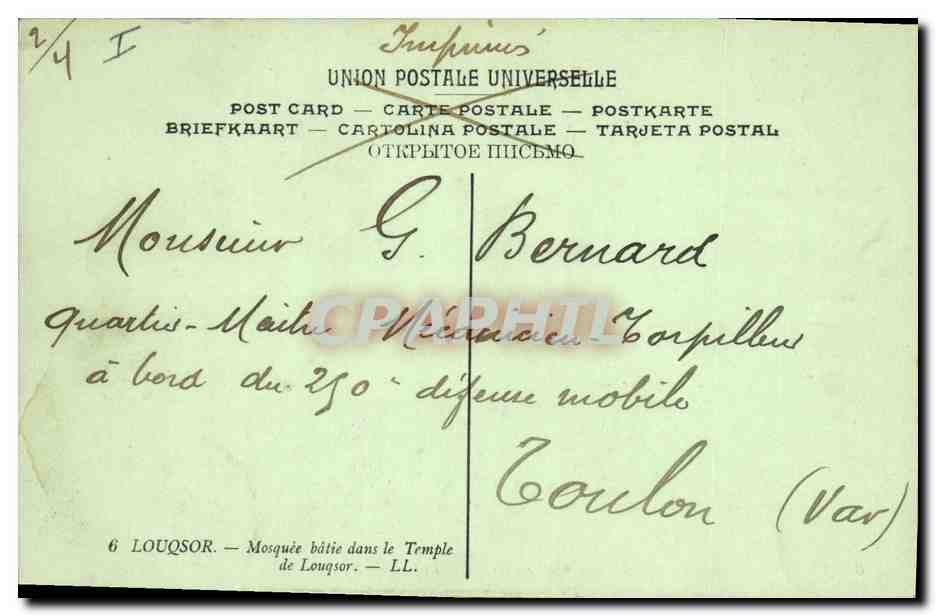 2/4 I
Imprimés
UNION POSTALE UNIVERSELLE
POST CARD — CARTE POSTALE — POSTKARTE
BRIEFKAART — CARTOLINA POSTALE — TARJETA POSTAL
ОТКРЫТОЕ ПИСЬМО
Monsieur G. Bernard
Quartier-Maître Mécanicien-Torpilleur
CPAPHIL
à bord du 250 défense mobile
Toulon (Var)
6 LOUQSOR. — Mosquée bâtie dans le Temple
de Louqsor. — LL.